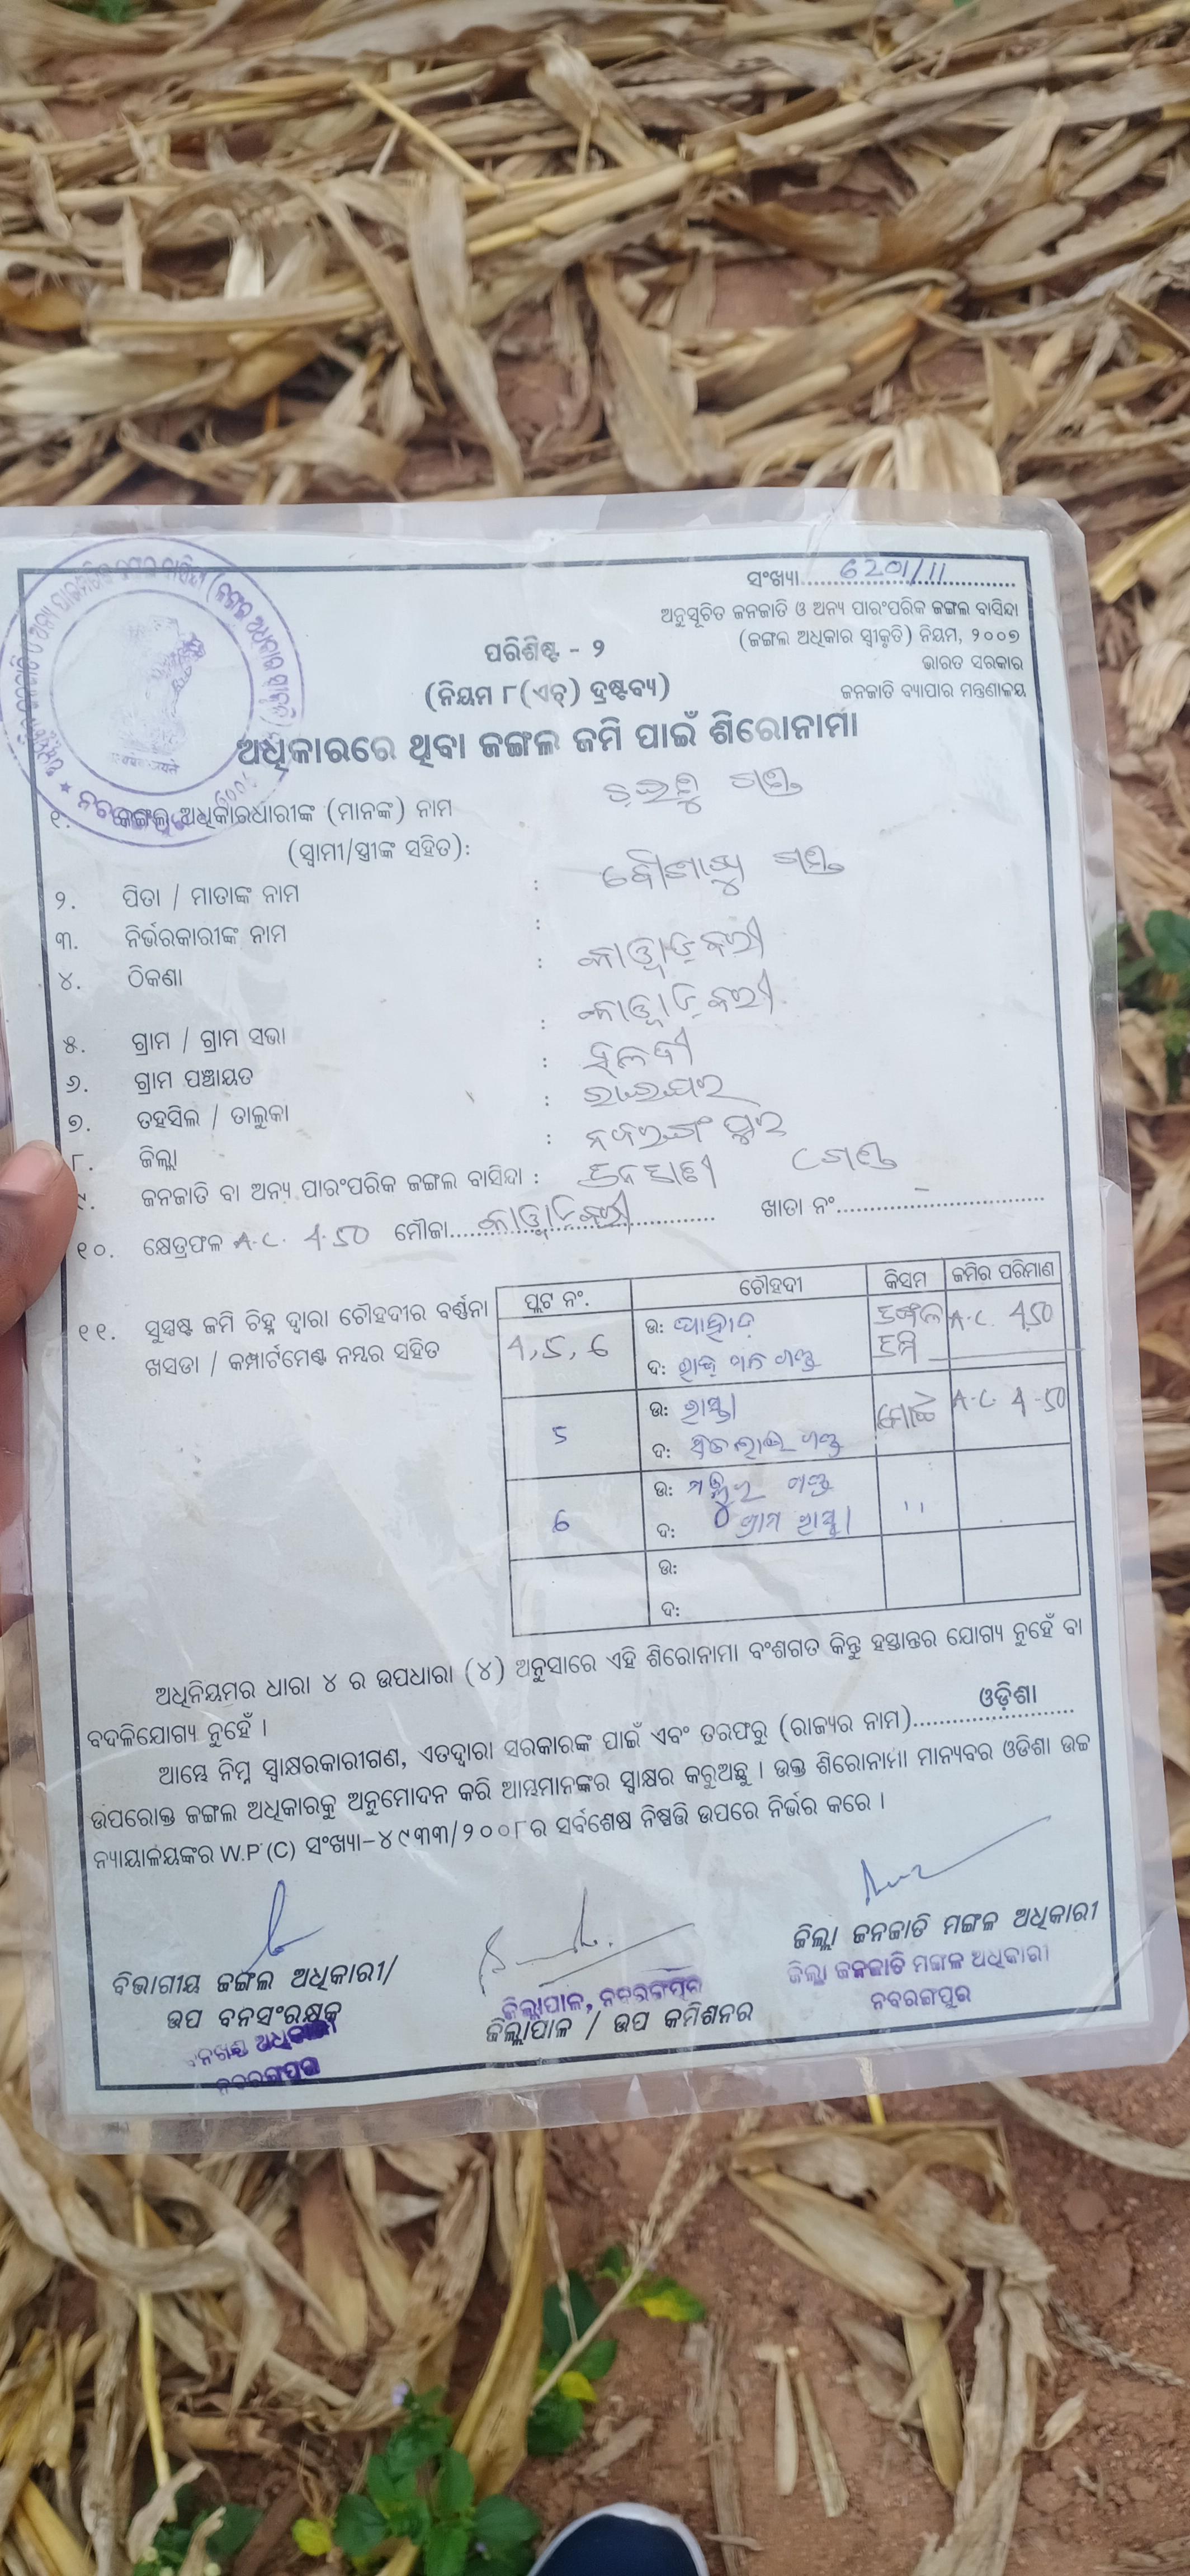 ସଂଖ୍ୟା 6201/11
ଅନୁସୂଚିତ ଜନଜାତି ଓ ଅନ୍ୟ ପାରଂପରିକ ଜଙ୍ଗଲ ବାସିନ୍ଦା
(ଜଙ୍ଗଲ ଅଧିକାର ସ୍ୱୀକୃତି) ନିୟମ, ୨୦୦୭
ଭାରତ ସରକାର
ଜନଜାତି ବ୍ୟାପାର ମନ୍ତ୍ରଣାଳୟ
ପରିଶିଷ୍ଟ - ୨
(ନିୟମ ୮(ଏଚ୍) ଦ୍ରଷ୍ଟବ୍ୟ)
ଅଧିକାରରେ ଥିବା ଜଙ୍ଗଲ ଜମି ପାଇଁ ଶିରୋନାମା
୧. ଜଙ୍ଗଲ ଅଧିକାରଧାରୀଙ୍କ (ମାନଙ୍କ) ନାମ ଗଣ୍ଡ
(ସ୍ୱାମୀ/ସ୍ତ୍ରୀଙ୍କ ସହିତ):
୨. ପିତା / ମାତାଙ୍କ ନାମ : ଗଣ୍ଡ
୩. ନିର୍ଭରକାରୀଙ୍କ ନାମ :
୪. ଠିକଣା :
୫. ଗ୍ରାମ / ଗ୍ରାମ ସଭା :
୬. ଗ୍ରାମ ପଞ୍ଚାୟତ :
୭. ତହସିଲ / ତାଲୁକା : ରାଇଘର
୮. ଜିଲ୍ଲା : ନବରଙ୍ଗପୁର
୯. ଜନଜାତି ବା ଅନ୍ୟ ପାରଂପରିକ ଜଙ୍ଗଲ ବାସିନ୍ଦା : ଜନଜାତୀ (ଗଣ୍ଡ
୧୦. କ୍ଷେତ୍ରଫଳ A.C. 4.50 ମୌଜା ଖାତା ନଂ –
୧୧. ସୁସ୍ପଷ୍ଟ ଜମି ଚିହ୍ନ ଦ୍ୱାରା ଚୌହଦୀର ବର୍ଣ୍ଣନା
ଖସଡା / କମ୍ପାର୍ଟମେଣ୍ଟ ନମ୍ବର ସହିତ
ପ୍ଲଟ ନଂ. ଚୌହଦୀ କିସମ ଜମିର ପରିମାଣ
4, 5, 6 ଉ: ପାହାଡ଼ ଜଙ୍ଗଲ ଜମି A.C. 4.50
ଦ: ଗଣ୍ଡ
5 ଉ: ରାସ୍ତା A.C. 4-50
ଦ: ଗଣ୍ଡ
6 ଉ: ଗଣ୍ଡ "
ଦ: ଗ୍ରାମ ରାସ୍ତା
ଉ:
ଦ:
ଅଧିନିୟମର ଧାରା ୪ ର ଉପଧାରା (୪) ଅନୁସାରେ ଏହି ଶିରୋନାମା ବଂଶଗତ କିନ୍ତୁ ହସ୍ତାନ୍ତର ଯୋଗ୍ୟ ନୁହେଁ ବା
ବଦଳିଯୋଗ୍ୟ ନୁହେଁ ।
ଆମ୍ଭେ ନିମ୍ନ ସ୍ୱାକ୍ଷରକାରୀଗଣ, ଏତଦ୍ଵାରା ସରକାରଙ୍କ ପାଇଁ ଏବଂ ତରଫରୁ (ରାଜ୍ୟର ନାମ) ଓଡ଼ିଶା
ଉପରୋକ୍ତ ଜଙ୍ଗଲ ଅଧିକାରକୁ ଅନୁମୋଦନ କରି ଆମ୍ଭମାନଙ୍କର ସ୍ୱାକ୍ଷର କରୁଅଛୁ । ଉକ୍ତ ଶିରୋନାମା ମାନ୍ୟବର ଓଡିଶା ଉଚ୍ଚ
ନ୍ୟାୟାଳୟଙ୍କର W.P (C) ସଂଖ୍ୟା-୪୯୩୩/୨୦୦୮ର ସର୍ବଶେଷ ନିଷ୍ପତ୍ତି ଉପରେ ନିର୍ଭର କରେ ।
ବିଭାଗୀୟ ଜଙ୍ଗଲ ଅଧିକାରୀ/
ଉପ ବନସଂରକ୍ଷକ
ବନଖଣ୍ଡ ଅଧିକାରୀ
ନବରଙ୍ଗପୁର
ଜିଲ୍ଲାପାଳ, ନବରଙ୍ଗପୁର
ଜିଲ୍ଲାପାଳ / ଉପ କମିଶନର
ଜିଲ୍ଲା ଜନଜାତି ମଙ୍ଗଳ ଅଧିକାରୀ
ଜିଲ୍ଲା ଜନଜାତି ମଙ୍ଗଳ ଅଧିକାରୀ
ନବରଙ୍ଗପୁର